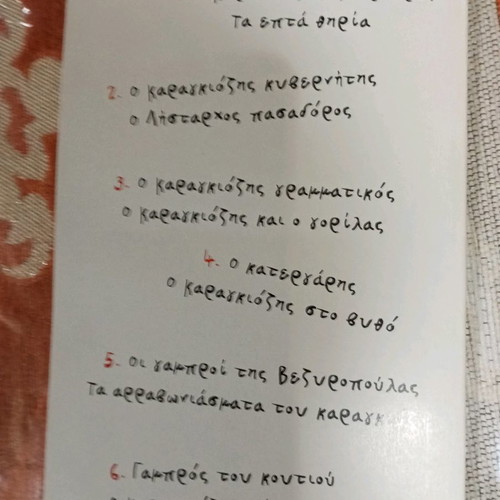 Τα επτά θηρία
2. ο καραγκιόζης κυβερνήτης
ο Λήσταρχος πασαδόρος
3. ο καραγκιόζης γραμματικός
ο καραγκιόζης και ο γορίλας
4. ο κατεργάρης
ο καραγκιόζης στο βυθό
5. οι γαμπροί της Βεζυροπούλας
Τα αρραβωνιάσματα του
6. Γαμπρός του κουτιού